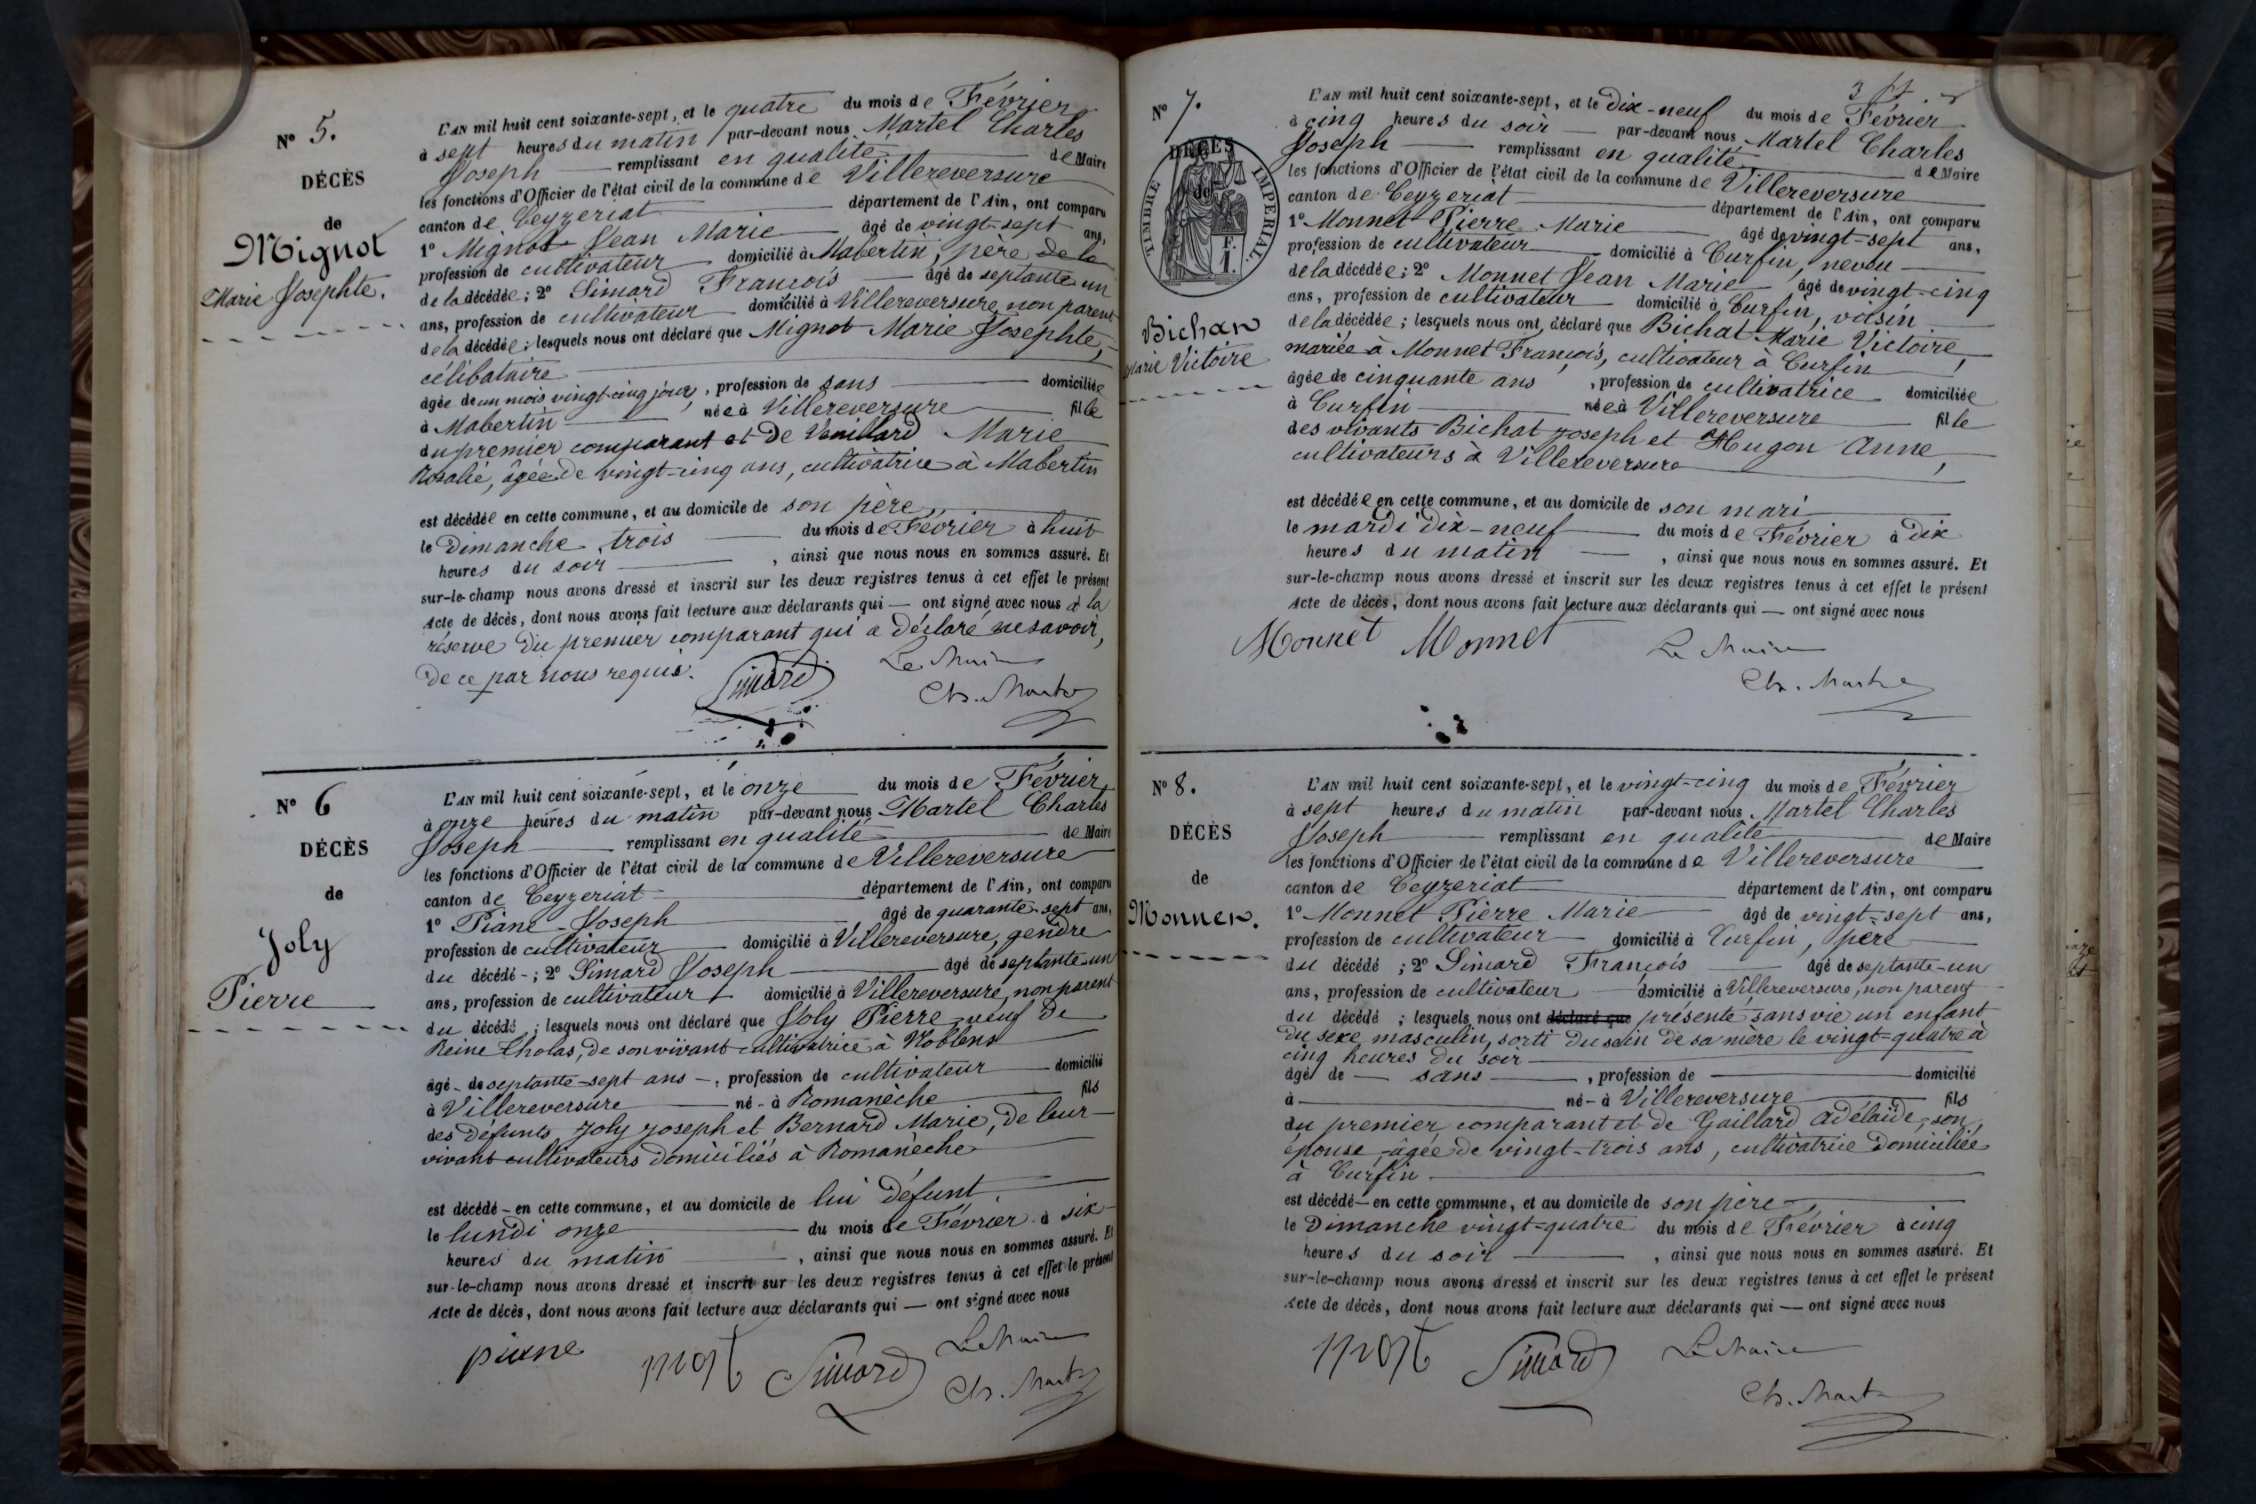 Nº 5.
DÉCÈS
de
Mignot
Marie Josephte.
L'AN mil huit cent soixante-sept, et le quatre du mois de Février
à sept heures du matin par-devant nous Martel Charles
Joseph remplissant en qualité de Maire
les fonctions d'Officier de l'état civil de la commune de Villereversure
canton de Ceyzeriat département de l'Ain, ont comparu
1º Mignot Jean Marie âgé de vingt-sept ans,
profession de cultivateur domicilié à Mabertin, père de la
de la décédée; 2º Simard François âgé de septante un
ans, profession de cultivateur domicilié à Villereversure non parent
de la décédée; lesquels nous ont déclaré que Mignot Marie Josephte,
célibataire
âgée de un mois vingt-cinq jours, profession de sans domiciliée
à Mabertin née à Villereversure fille
du premier comparant et de Marie
Rosalie, âgée de vingt-cinq ans, cultivatrice à Mabertin
est décédée en cette commune, et au domicile de son père
le Dimanche trois du mois de Février à huit
heures du soir, ainsi que nous nous en sommes assuré. Et
sur-le-champ nous avons dressé et inscrit sur les deux registres tenus à cet effet le présent
Acte de décès, dont nous avons fait lecture aux déclarants qui — ont signé avec nous à la
réserve du premier comparant qui a déclaré ne savoir,
de ce par nous requis.
Simard
Le Maire
Ch. Martel
Nº 6
DÉCÈS
de
Joly
Pierre
L'AN mil huit cent soixante-sept, et le onze du mois de Février
à onze heures du matin par-devant nous Martel Charles
Joseph remplissant en qualité de Maire
les fonctions d'Officier de l'état civil de la commune de Villereversure
canton de Ceyzeriat département de l'Ain, ont comparu
1º Piane Joseph âgé de quarante-sept ans,
profession de cultivateur domicilié à Villereversure, gendre
du décédé -; 2º Simard Joseph âgé de septante-un
ans, profession de cultivateur domicilié à Villereversure, non parent
du décédé; lesquels nous ont déclaré que Joly Pierre veuf de
Reine Cholas, de son vivant cultivatrice à Noblens
âgé - de septante-sept ans —, profession de cultivateur domicilié
à Villereversure né - à Romanèche fils
des défunts Joly Joseph et Bernard Marie, de leur
vivant cultivateurs domiciliés à Romanèche
est décédé - en cette commune, et au domicile de lui défunt,
le lundi onze du mois de Février à six
heures du matin, ainsi que nous nous en sommes assuré. Et
sur-le-champ nous avons dressé et inscrit sur les deux registres tenus à cet effet le présent
Acte de décès, dont nous avons fait lecture aux déclarants qui — ont signé avec nous
piane
Simard
Le Maire
Ch. Martel
Nº 7.
DÉCÈS
de
TIMBRE IMPERIAL.
F.
1.
Bichat
Marie Victoire
L'AN mil huit cent soixante-sept, et le dix-neuf du mois de Février
à cinq heures du soir par-devant nous Martel Charles
Joseph remplissant en qualité de Maire
les fonctions d'Officier de l'état civil de la commune de Villereversure
canton de Ceyzeriat département de l'Ain, ont comparu
1º Monnet Pierre Marie âgé de vingt-sept ans,
profession de cultivateur domicilié à Curfin, neveu
de la décédée; 2º Monnet Jean Marie âgé de vingt-cinq
ans, profession de cultivateur domicilié à Curfin, voisin
de la décédée; lesquels nous ont déclaré que Bichat Marie Victoire,
mariée à Monnet François, cultivateur à Curfin,
âgée de cinquante ans, profession de cultivatrice domiciliée
à Curfin née à Villereversure fille
des vivants Bichat Joseph et Hugon Anne,
cultivateurs à Villereversure
est décédée en cette commune, et au domicile de son mari
le mardi dix-neuf du mois de Février à dix
heures du matin, ainsi que nous nous en sommes assuré. Et
sur-le-champ nous avons dressé et inscrit sur les deux registres tenus à cet effet le présent
Acte de décès, dont nous avons fait lecture aux déclarants qui — ont signé avec nous
Monnet Monnet
Le Maire
Ch. Martel
Nº 8.
DÉCÈS
de
Monnet.
L'AN mil huit cent soixante-sept, et le vingt-cinq du mois de Février
à sept heures du matin par-devant nous Martel Charles
Joseph remplissant en qualité de Maire
les fonctions d'Officier de l'état civil de la commune de Villereversure
canton de Ceyzeriat département de l'Ain, ont comparu
1º Monnet Pierre Marie âgé de vingt-sept ans,
profession de cultivateur domicilié à Curfin, père
du décédé; 2º Simard François âgé de septante-un
ans, profession de cultivateur domicilié à Villereversure, non parent
du décédé; lesquels nous ont déclaré que présenté sans vie un enfant
du sexe masculin, sorti du sein de sa mère le vingt-quatre à
cinq heures du soir
âgé de — sans —, profession de — domicilié
à — né - à Villereversure fils
du premier comparant et de Gaillard Adélaïde, son
épouse, âgée de vingt-trois ans, cultivatrice domiciliée
à Curfin
est décédé - en cette commune, et au domicile de son père
le Dimanche vingt-quatre du mois de Février à cinq
heures du soir, ainsi que nous nous en sommes assuré. Et
sur-le-champ nous avons dressé et inscrit sur les deux registres tenus à cet effet le présent
Acte de décès, dont nous avons fait lecture aux déclarants qui — ont signé avec nous
Simard
Le Maire
Ch. Martel